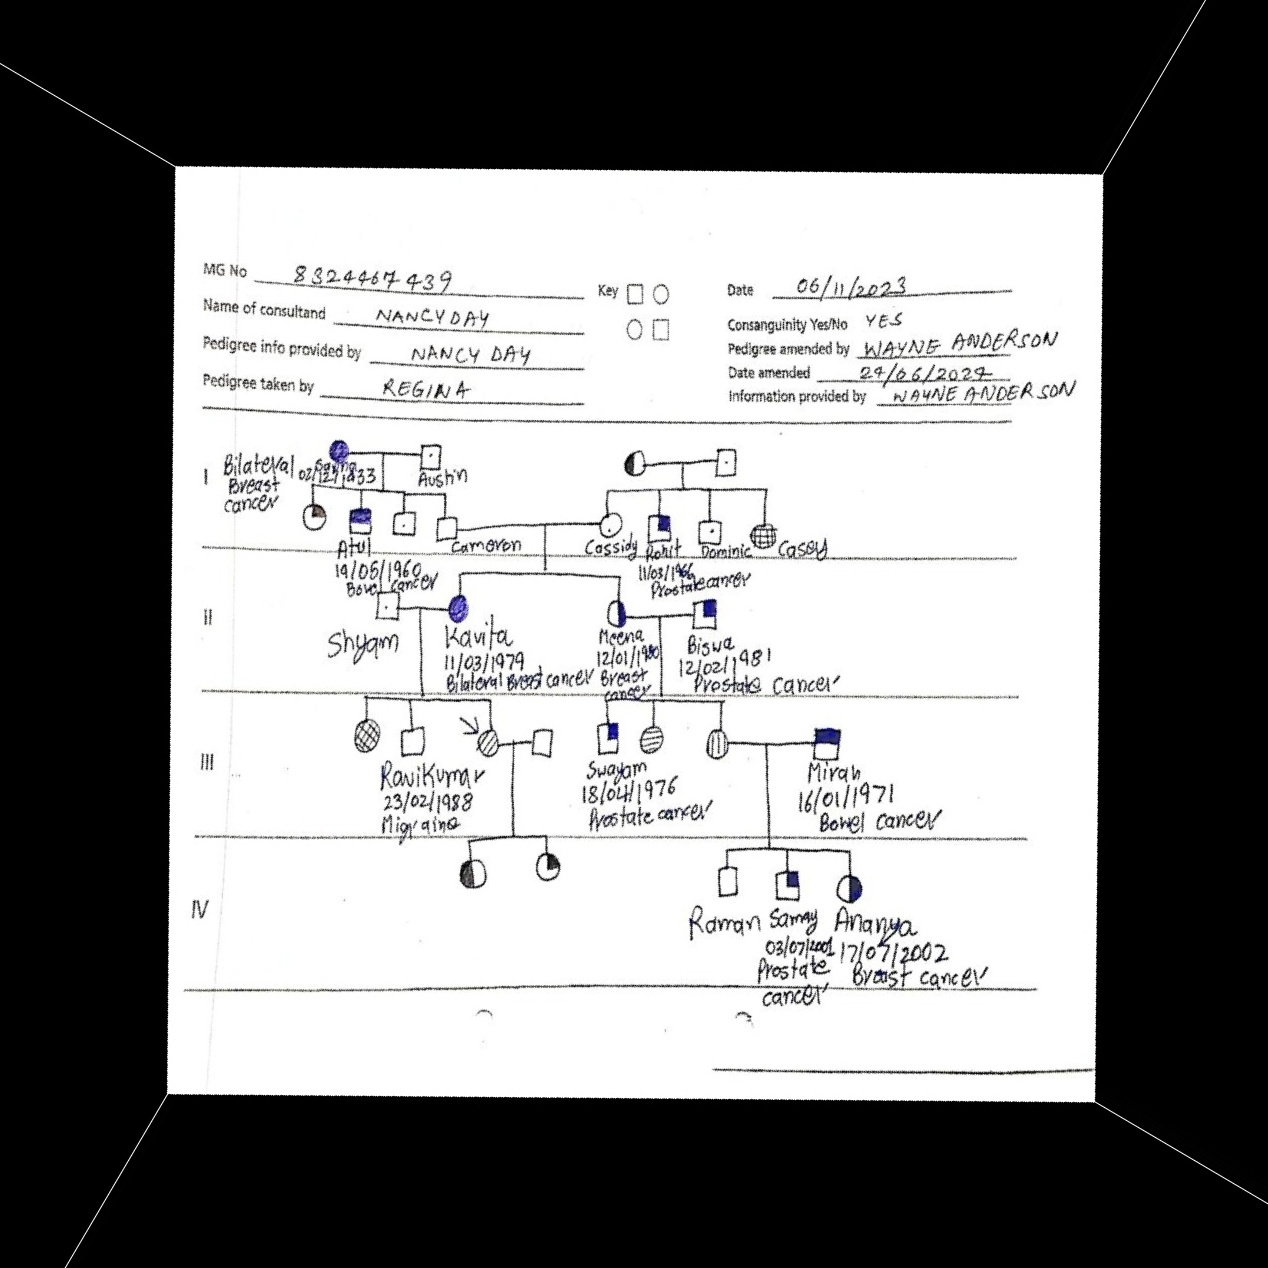 MG No 8324467439
Name of consultand NANCY DAY
Pedigree info provided by NANCY DAY
Pedigree taken by REGINA
Key
Date 06/11/2023
Consanguinity Yes/No YES
Pedigree amended by WAYNE ANDERSON
Date amended 24/06/2024
Information provided by WAYNE ANDERSON
I
Bilateral
Breast
cancer
02/12/1933
Austin
Atul
19/05/1960
Bowel cancer
Cameron
Cassidy
Rohit
11/03/1966
Prostate cancer
Dominic
Casey
II
Shyam
Kavita
11/03/1979
Bilateral Breast cancer
Meena
12/01/1980
Breast
cancer
Biswa
12/02/1981
Prostate cancer
III
RaviKumar
23/02/1988
Migraine
Swayam
18/04/1976
Prostate cancer
Miran
16/01/1971
Bowel cancer
IV
Raman
Samay
03/07/2001
Prostate
cancer
Ananya
17/07/2002
Breast cancer